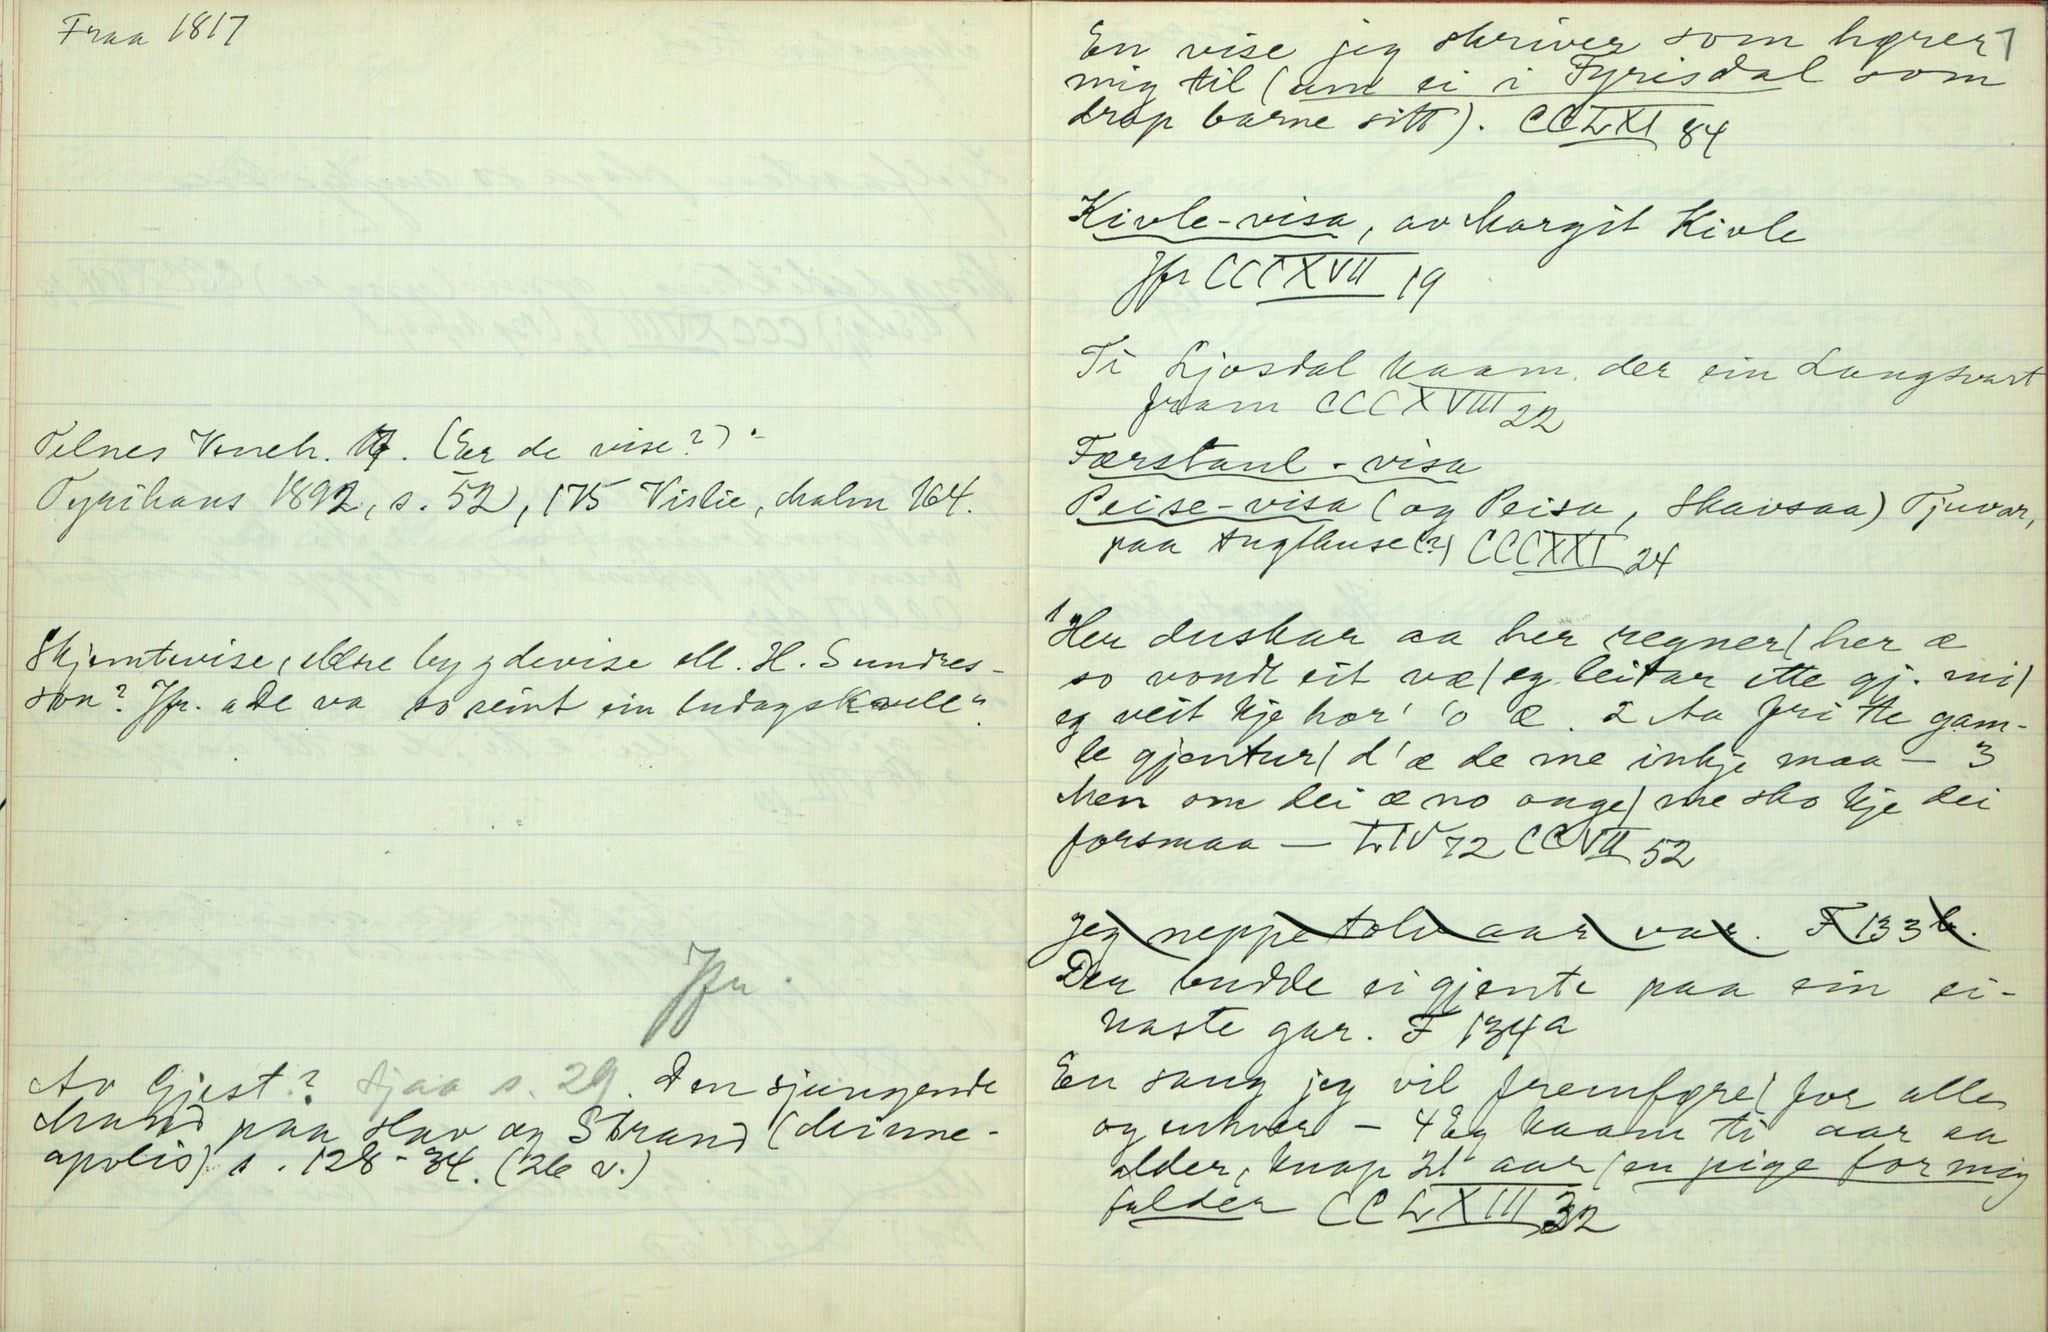 Fraa 1817
Telnes Vinch. 17. (Er de vise?)
Tyrihans 1892, s. 52, 175 Vislie, Malm 164.
Skjemtevise, eldre bygdevise ell. H. Sundres-
son? Jfr. "De va so seint ein Indagskvell"
Jfr.
Av Gjest? sjaa s. 29. Den sjungende
Mand paa Hav og Strand (Minne-
apolis) s. 128-34. (26 v.)
En vise jeg skriver som hører
mig til (um ei i Fyrisdal som
drap barne sitt). CCLXI 84
Kivle-visa, av Margit Kivle
Jfr CCCXVII 19
Ti Ljosdal kaam der ein Langsvart
fram CCCXVIII 22
Færstaul-visa
Peise-visa (og Peisa, Skavsaa) Tjuvar,
paa (?) CCCXXI 24
1 Her duskar aa her regner/ her æ
so vondt eit væ/ eg leitar ette gj. mi/
eg veit kje hor' 'o æ. 2 Aa fri te gam-
le gjentur/ d'æ de me inkje maa — 3
Men om dei æ no onge/ me sko kje dei
forsmaa — LIV 72 CCVII 52
Jeg neppe tolv aar var. F 133 b.
Der budde ei gjente paa ein ei-
naste gar. F 134a
En sang jeg vil fremføre/ for alle
og enhver — 4 Eg kaam ti aar aa
alder, knap 21 aar/ en pige for mig
falder CCLXIII 32